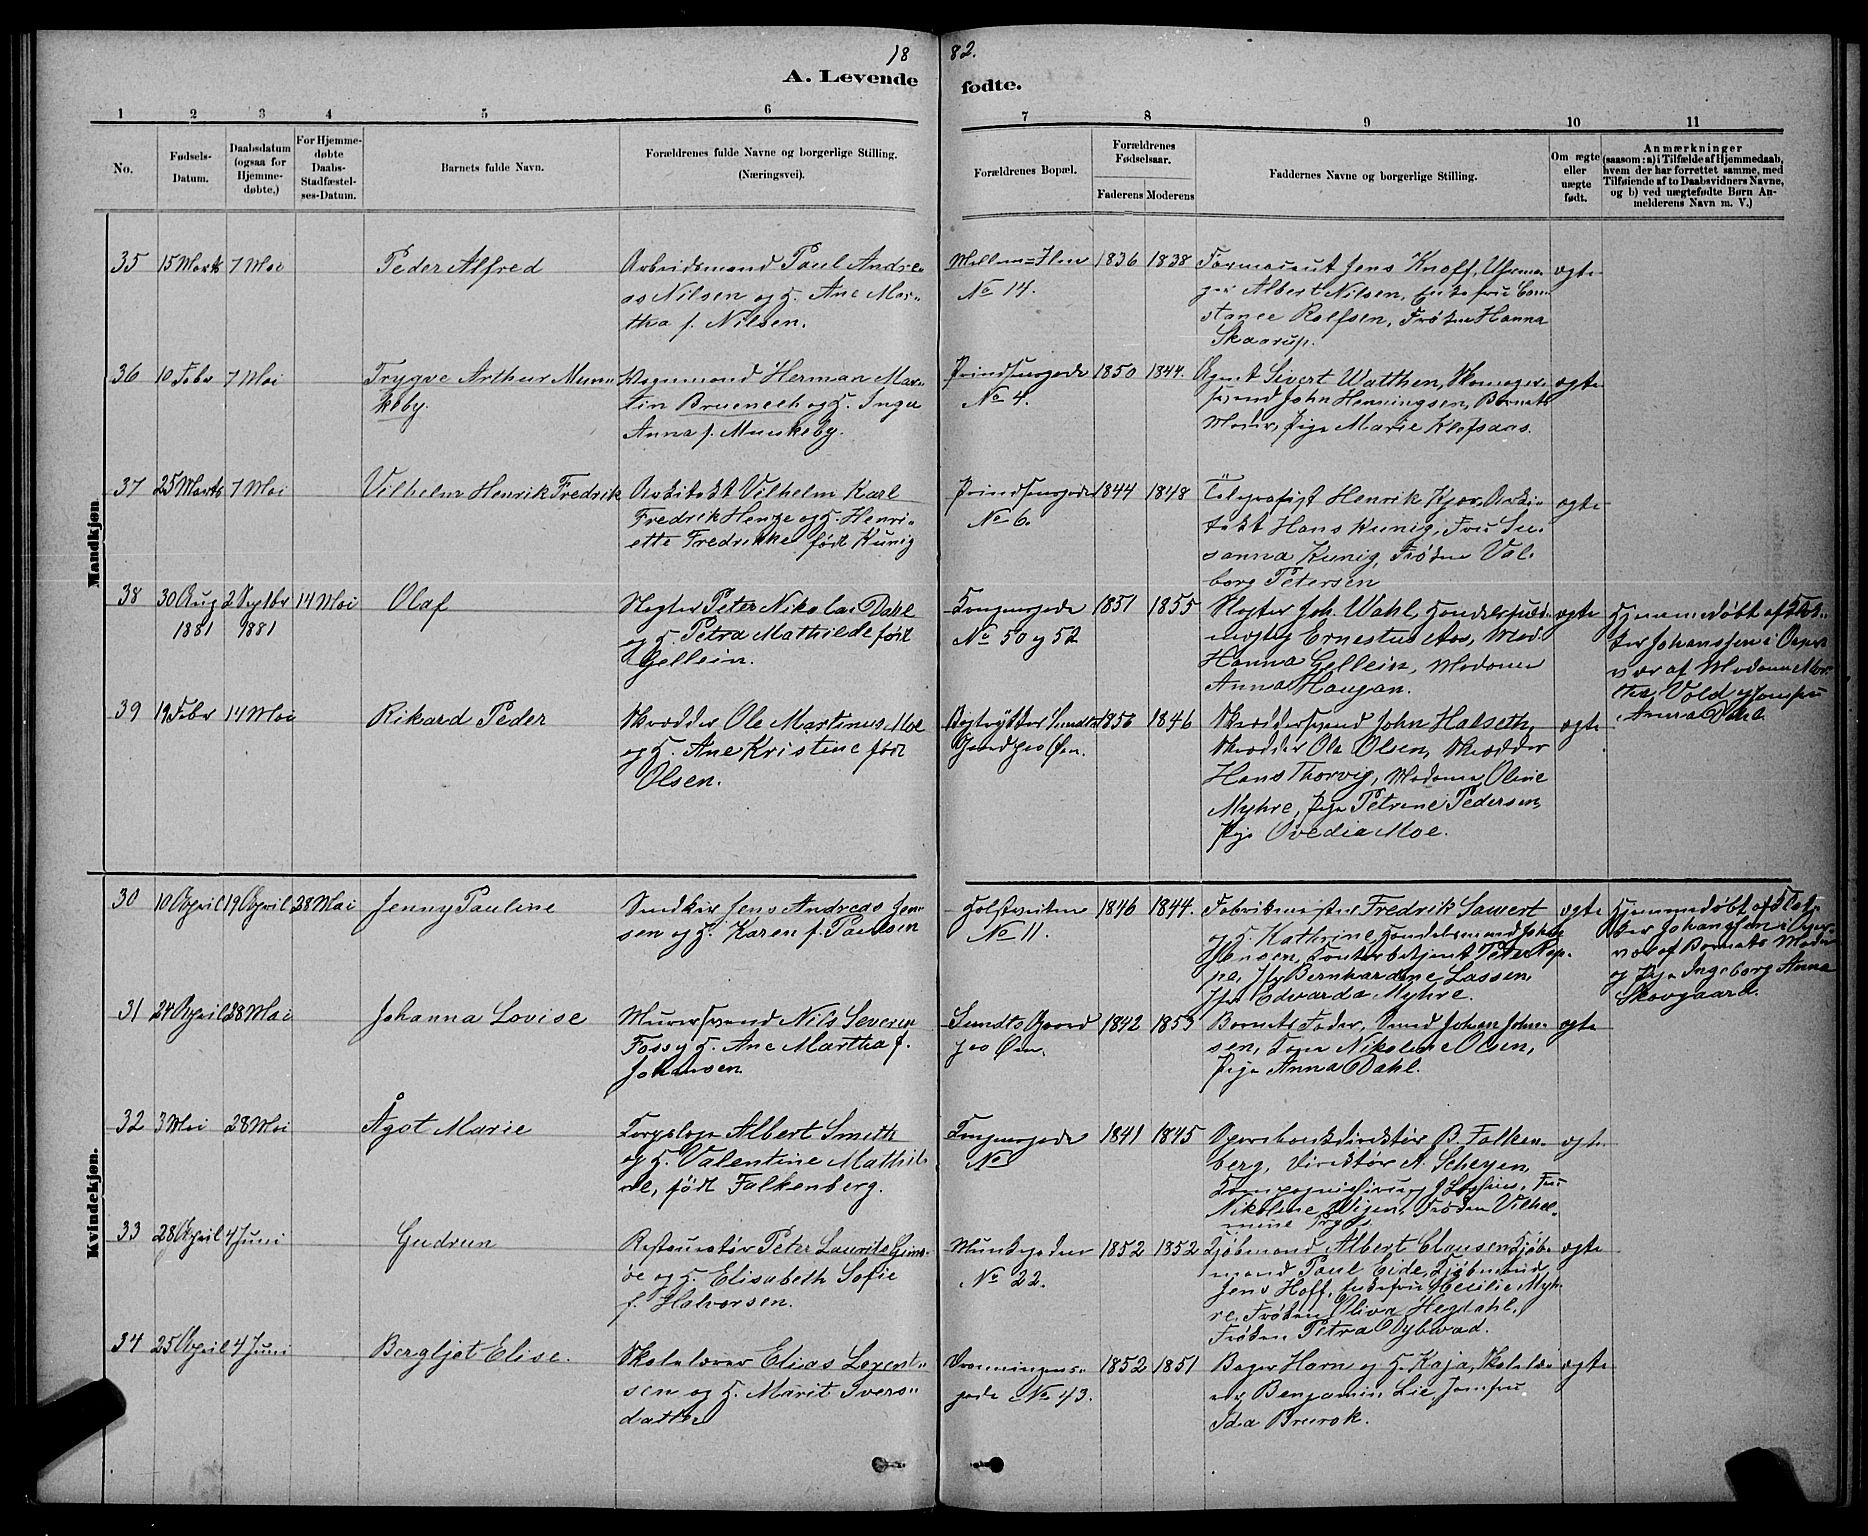 18 82.
A. Levende fødte.
1 2 3 4 5 6 7 8 9 10 11
No.
Fødsels-
Datum.
Daabsdatum
(ogsaa for
Hjemme-
døbte,)
For Hjemme-
døbte
Daabs-
Stadfæstel-
ses-Datum.
Barnets fulde Navn.
Forældrenes fulde Navne og borgerlige Stilling.
(Næringsvei).
Forældrenes Bopæl.
Forældrenes
Fødselsaar.
Faderens Moderens
Faddernes Navne og borgerlige Stilling.
Om ægte
eller
uægte
født.
Anmærkninger
(saasom: a) i Tilfælde af Hjemmedaab,
hvem der har forrettet samme, med
Tilføiende af to Daabsvidners Navne,
og b) ved uægtefødte Børn An-
melderens Navn m. V.)
Mandkjøn
35 15 Marts 7 Mai
Peder Alfred
Arbeidsmand Paul Andre-
as Nilsen og H. Ane Mar-
tha f. Nilsen.
Mellem=Ilen
No 14.
1836 1838
Farmaceut Jens Knoff,
Albert Nilsen, Enkefru Con-
stance Rolfsen, Frøken Hanna
Skaarup.
ægte
36 10 Febr 7 Mai
Trygve Arthur Mun-
keby.
Vognmand Herman Mar-
tin Bruenech og H. Inga
Anna f. Munkeby.
Prindsensgade
No 4.
1850 1844.
Agent Sivert Watthen, Skomager-
svend John Henningsen, Barnets
Moder, Pige Marie Klefsaas.
ægte
37 25 Marts 7 Mai
Vilhelm Henrik Fredrik
Arkitekt Vilhelm Karl
Fredrik Henze og H. Henri-
ette Fredrikke født Kunig
Prindsensgade
No 6.
1844 1848
Telegrafist Henrik Kjær, Arki-
tekt Hans Kunig, Fru Su-
sanna Kunig, Frøken Val-
borg Petersen
ægte
38 30 Aug 2 Septbr 14 Mai
1881 1881
Olaf
Slagter Peter Nikolai Dahl
og H. Petra Mathilde født
Gellein.
Kongensgade
No 50 og 52
1851 1855
Slagter Joh. Wahl, Handelsfuld-
mægtig Ernestus Aas, Mad.
Hanna Gellein, Madame
Anna Haugan.
ægte
Hjemmedøbt af Klok-
ker Johanssen i Over-
vær af Madame Mar-
tha Vold og Jomfru
Anna Dahl.
39 19 Febr 14 Mai
Rikard Peder
Skrædder Ole Martinus Moe
og H. Ane Kristine født
Olsen.
Sundts
Gaard paa Øen.
1850 1846
Skræddersvend John Halseth,
Skrædder Ole Olsen, Skrædder
Hans Thorvig, Madame Oline
Myhre, Pige Petrine Pedersen,
Pige Ovedia Moe.
ægte
Kvindekjøn.
30 10 April 19 April 28 Mai
Jenny Pauline
Jens Andreas Jen-
sen og H. Karen f. Paulsen
Holstveiten
No 11.
1846 1844.
Fabrikmester Fredrik Sawert
og H. Kathrine, Handelsmand Johan
Jensen, Kontorbetjent Peter Rep-
pe, Jfr Bernhardine Lassen,
Jfr Edvarda Myhre.
ægte
Hjemmedøbt af Klok-
ker Johanssen i Over-
vær af Barnets Moder
og Pige Ingeborg Anna
Skovgaard.
31 24 April 28 Mai
Johanna Lovise
Murersvend Nils Severin
Foss og H. Ane Martha f.
Johansen.
Sundts Gaard
paa Øen.
1842 1853
Barnets Fader, Svend Johan John-
sen, Kone Nikoline Olsen,
Pige Anna Dahl.
ægte
32 3 Mai 28 Mai
Ågot Marie
Korpslæge Albert Smith
og H. Valentine Mathil-
de, født Falkenberg.
Kongensgade
No
1841 1845
Sparebankdirektør B. Falken-
berg, Direktør A. Scheyen,
Fru
Nikoline Wigen, Frøken Vilhel-
mine
ægte
33 28 April 4 Juni
Gudrun
Restauratør Peter Laurits
og H. Elisabeth Sofie
f. Halvorsen.
Munkegaden
No 22.
1852 1852
Kjøbmand Albert Clausen, Kjøb-
mand Paul Eide, Kjøbmand
Jens Hoff, Enkefru Cecilie Myh-
re, Frøken Oliva Hegdahl,
Frøken Petra Dybwad.
ægte
34 25 April 4 Juni
Bergljot Elise.
Skolelærer Elias Lorent-
sen og H. Marit Ivers-
datter
Dronningens-
gade No 43.
1852 1851
Bager Harn og H. Kaja, Skolelæ-
rer Benjamin Lie, Jomfru
Ida Brurok.
ægte